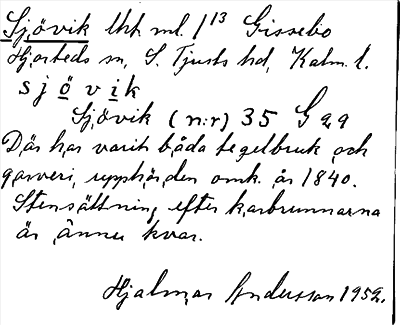 Sjövik lht ml. 1¹³ Gissebo
Hjorteds sn, S. Tjusts hd, Kalm. l.
sjövik
Sjövik (n:r) 35 G 2 9
Där har varit både tegelbruk och
garveri, upphörden omk. år 1840.
Stensättning efter karbrunnarna
är ännu kvar.
Hjalmar Andersson 1952.